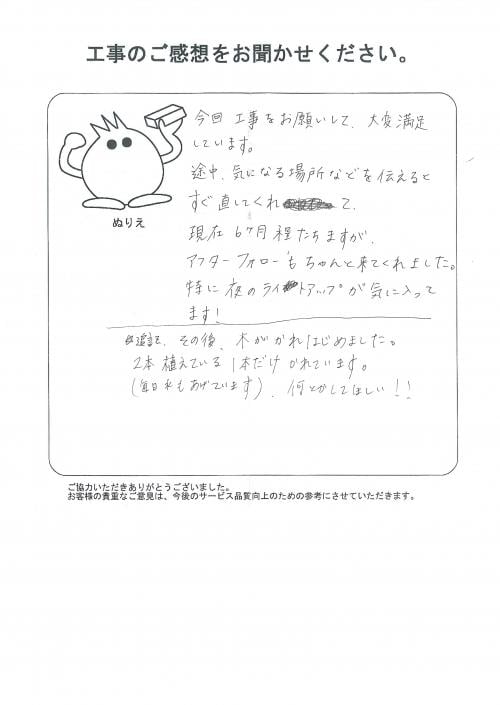 工事のご感想をお聞かせください。
今回 工事をお願いして、大変満足
しています。
途中、気になる場所などを伝えると
すぐ直してくれ て、
現在 6ヶ月程たちますが、
アフターフォローもちゃんと来てくれました。
特に夜のライトアップが気に入って
ます!
ぬりえ
追記、その後、木がかれはじめました。
2本植えている1本だけかれています。
(毎日水もあげています)、何とかしてほしい!!
ご協力いただきありがとうございました。
お客様の貴重なご意見は、今後のサービス品質向上のための参考にさせていただきます。